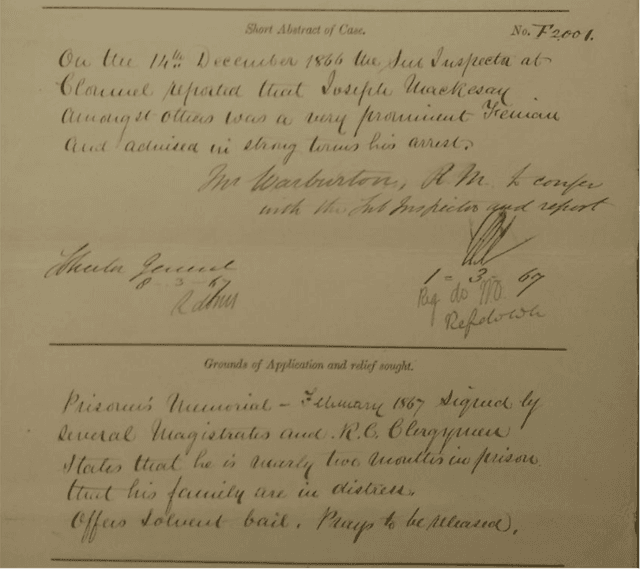 Short Abstract of Case.
No. F2001.
On the 14th December 1866 the Sub Inspector at
Clonmel reported that Joseph Mackesay
amongst others was a very prominent Fenian
and advised in strong terms his arrest.
Mr Warburton, R.M. to confer
with the Sub Inspector and report
1 - 3 - 67
8 - 3 - 67
Grounds of Application and relief sought.
Prisoner's Memorial - February 1867 Signed by
several Magistrates and R.C. Clergymen
States that he is nearly two months in prison
that his family are in distress.
Offers Solvent bail. Prays to be released.